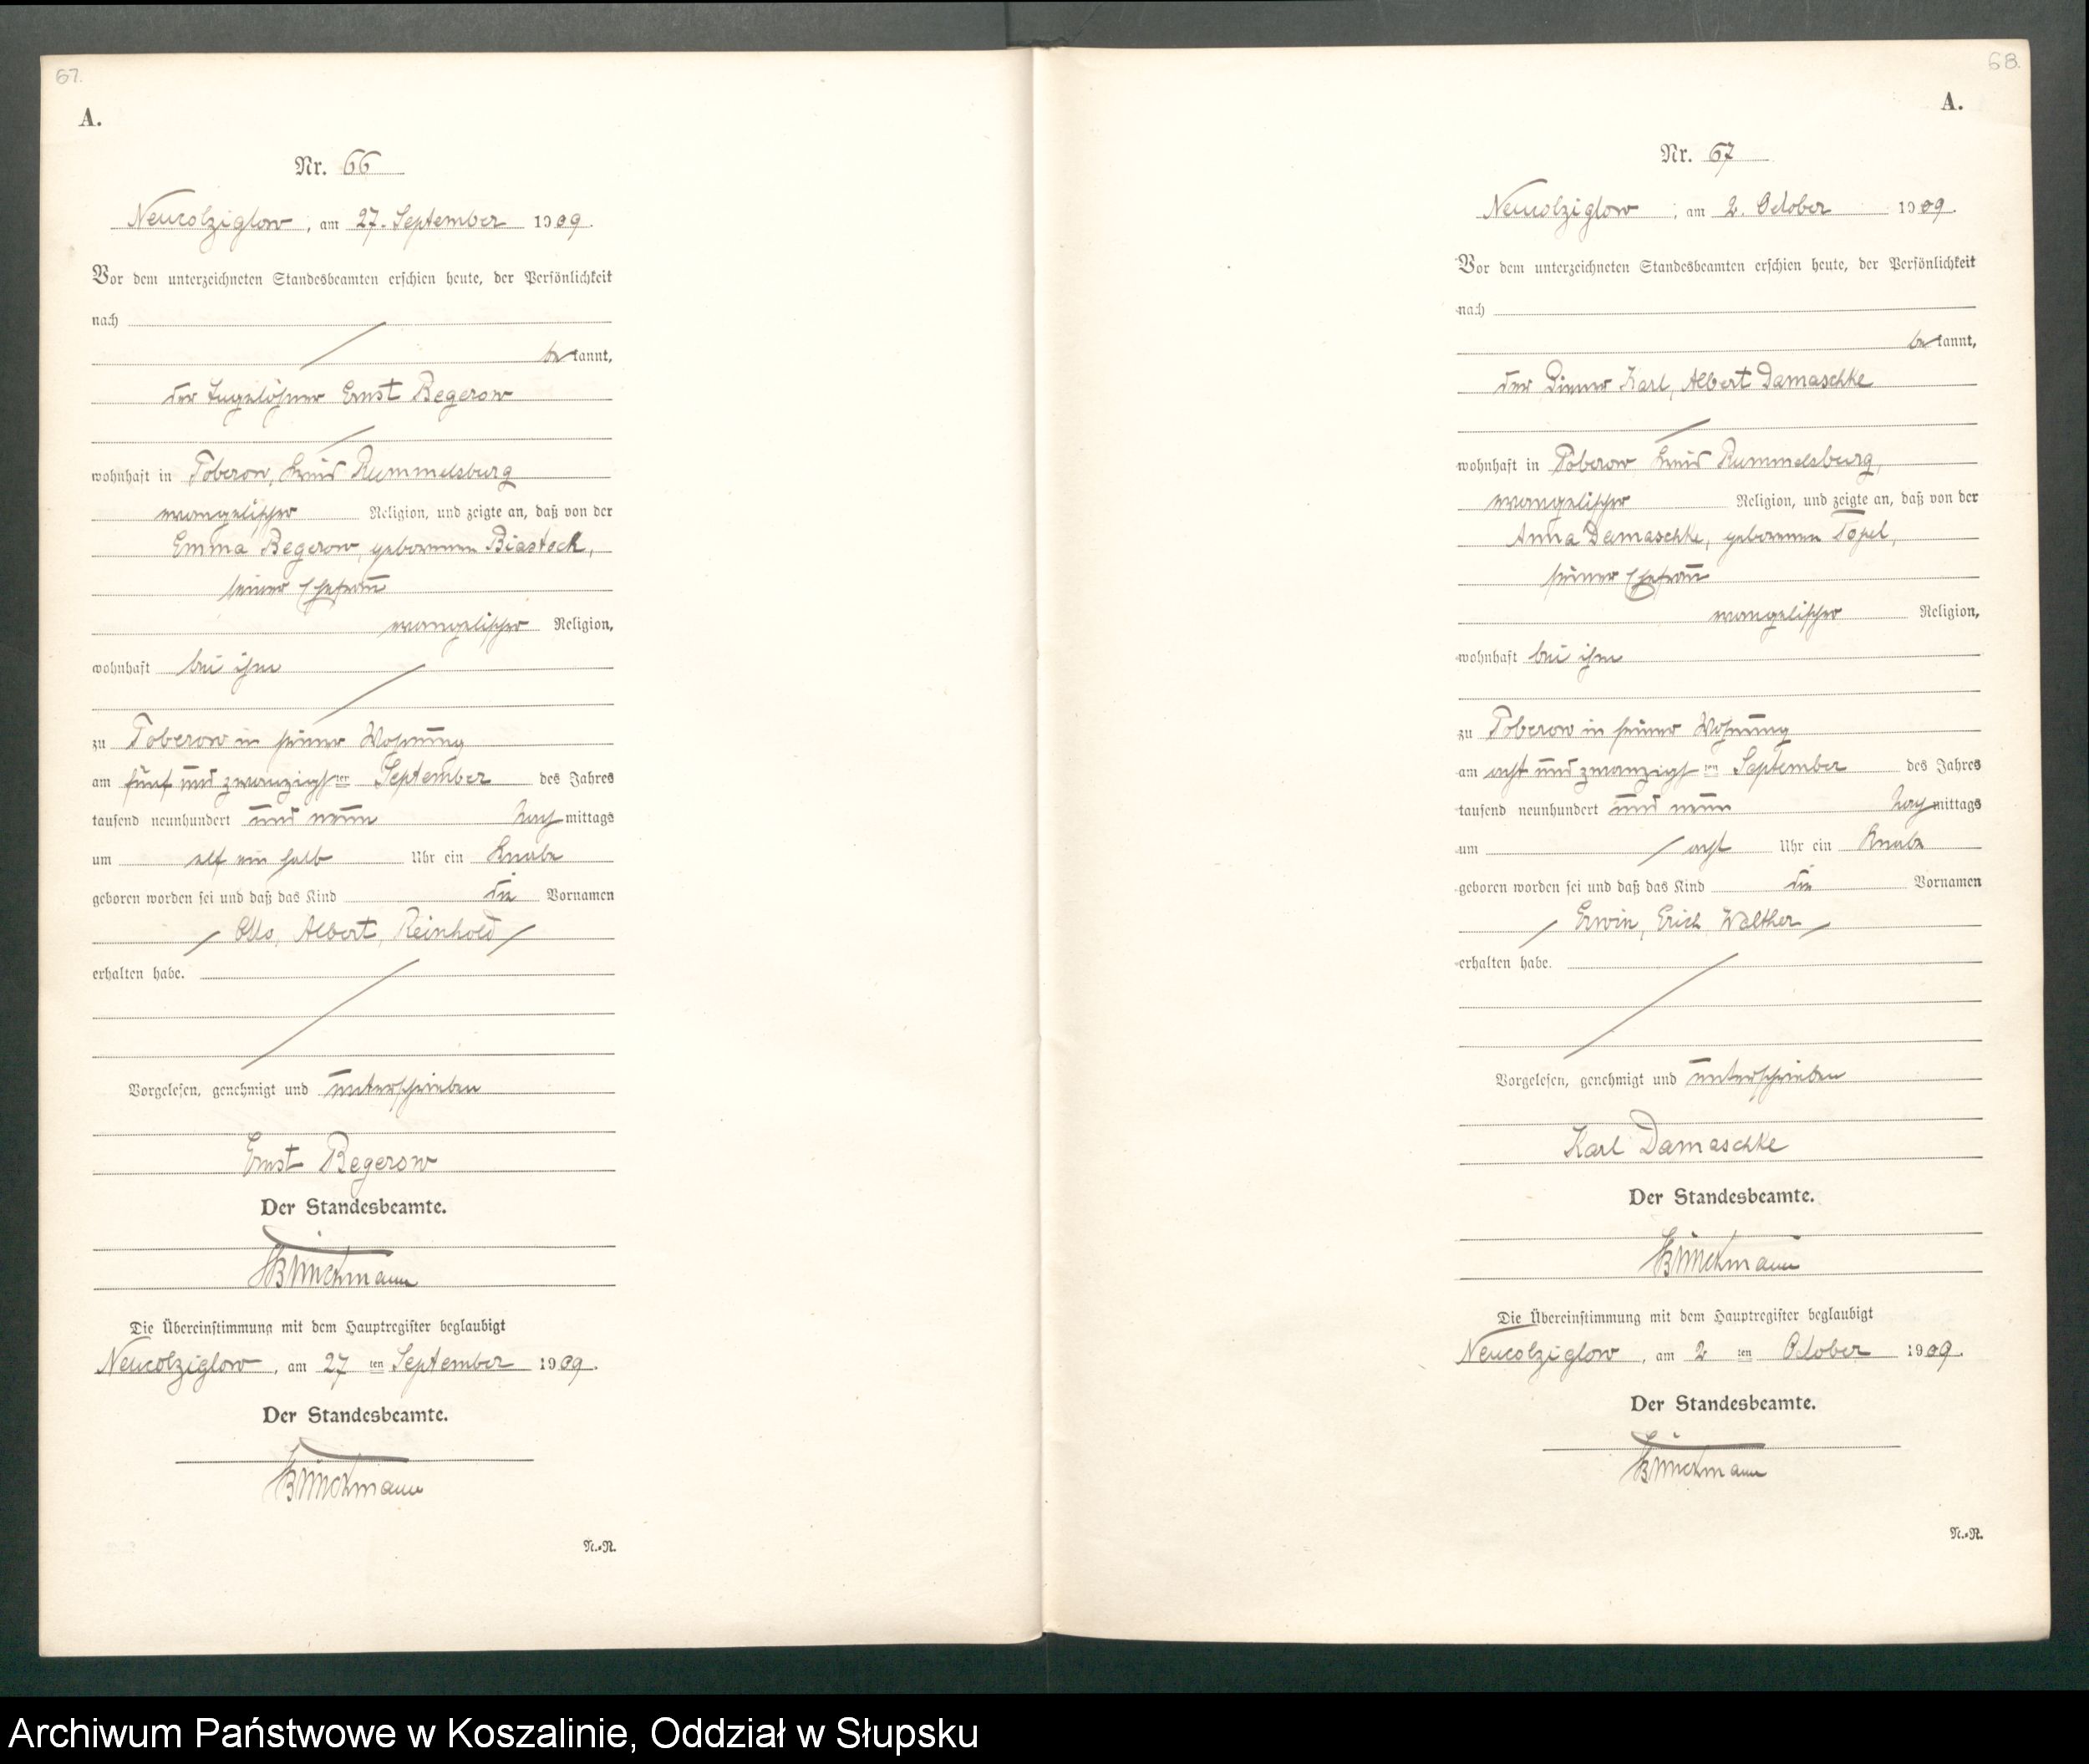 67.
A.
Nr. 66
Neucolziglow, am 27. September 1909.
Vor dem unterzeichneten Standesbeamten erschien heute, der Persönlichkeit
nach
bekannt,
der Tagelöhner Ernst Begerow
wohnhaft in Poberow, Kreis Rummelsburg
evangelischer Religion, und zeigte an, daß von der
Emma Begerow, geborenen Biastock,
seiner Ehefrau
evangelischer Religion,
wohnhaft bei ihm
zu Poberow in seiner Wohnung
am fünf und zwanzigsten September des Jahres
tausend neunhundert und neun Nachmittags
um elf ein halb Uhr ein Knabe
geboren worden sei und daß das Kind die Vornamen
Otto, Albert, Reinhold
erhalten habe.
Vorgelesen, genehmigt und unterschrieben
Ernst Begerow
Der Standesbeamte.
Brinckmann
Die Übereinstimmung mit dem Hauptregister beglaubigt
Neucolziglow, am 27 ten September 1909.
Der Standesbeamte.
Brinckmann
N.-R.
68.
A.
Nr. 67
Neucolziglow, am 2. October 1909.
Vor dem unterzeichneten Standesbeamten erschien heute, der Persönlichkeit
nach
bekannt,
der Diener Karl, Albert Damaschke
wohnhaft in Poberow Kreis Rummelsburg,
evangelischer Religion, und zeigte an, daß von der
Anna Damaschke, geborenen Topel,
seiner Ehefrau
evangelischer Religion,
wohnhaft bei ihm
zu Poberow in seiner Wohnung
am acht und zwanzigsten September des Jahres
tausend neunhundert und neun Nachmittags
um acht Uhr ein Knabe
geboren worden sei und daß das Kind die Vornamen
Erwin, Erich Walther
erhalten habe.
Vorgelesen, genehmigt und unterschrieben
Karl Damaschke
Der Standesbeamte.
Brinckmann
Die Übereinstimmung mit dem Hauptregister beglaubigt
Neucolziglow, am 2 ten October 1909.
Der Standesbeamte.
Brinckmann
N.-R.
Archiwum Państwowe w Koszalinie, Oddział w Słupsku